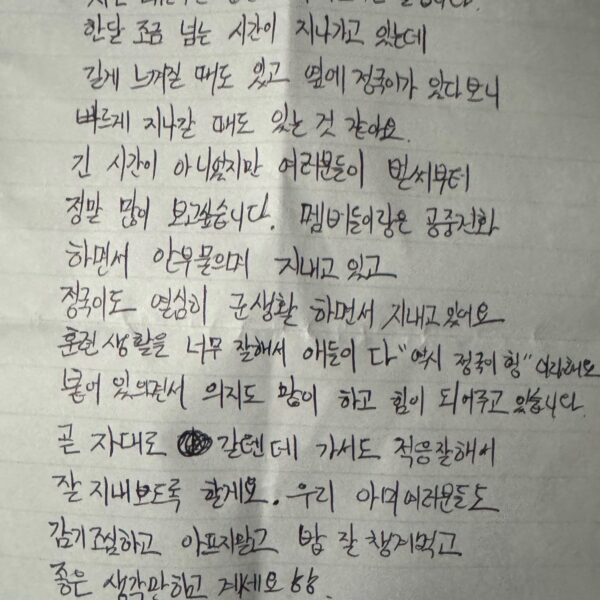 한달 조금 넘는 시간이 지나가고 있는데
길게 느껴질 때도 있고 옆에 정국이가 있다보니
빠르게 지나갈 때도 있는 것 같아요.
긴 시간이 아니었지만 여러분들이 벌써부터
정말 많이 보고싶습니다. 멤버들이랑은 공중전화
하면서 안부물으며 지내고 있고
정국이도 열심히 군생활 하면서 지내고 있어요
훈련 생활을 너무 잘해서 애들이 다 "역시 정국이 형" 이라해요
붙어 있으면서 의지도 많이 하고 힘이 되어주고 있습니다.
곧 자대로 갈텐데 가서도 적응잘해서
잘 지내보도록 할게요. 우리 아미여러분들도
감기조심하고 아프지말고 밥 잘 챙겨먹고
좋은 생각만하고 계세요